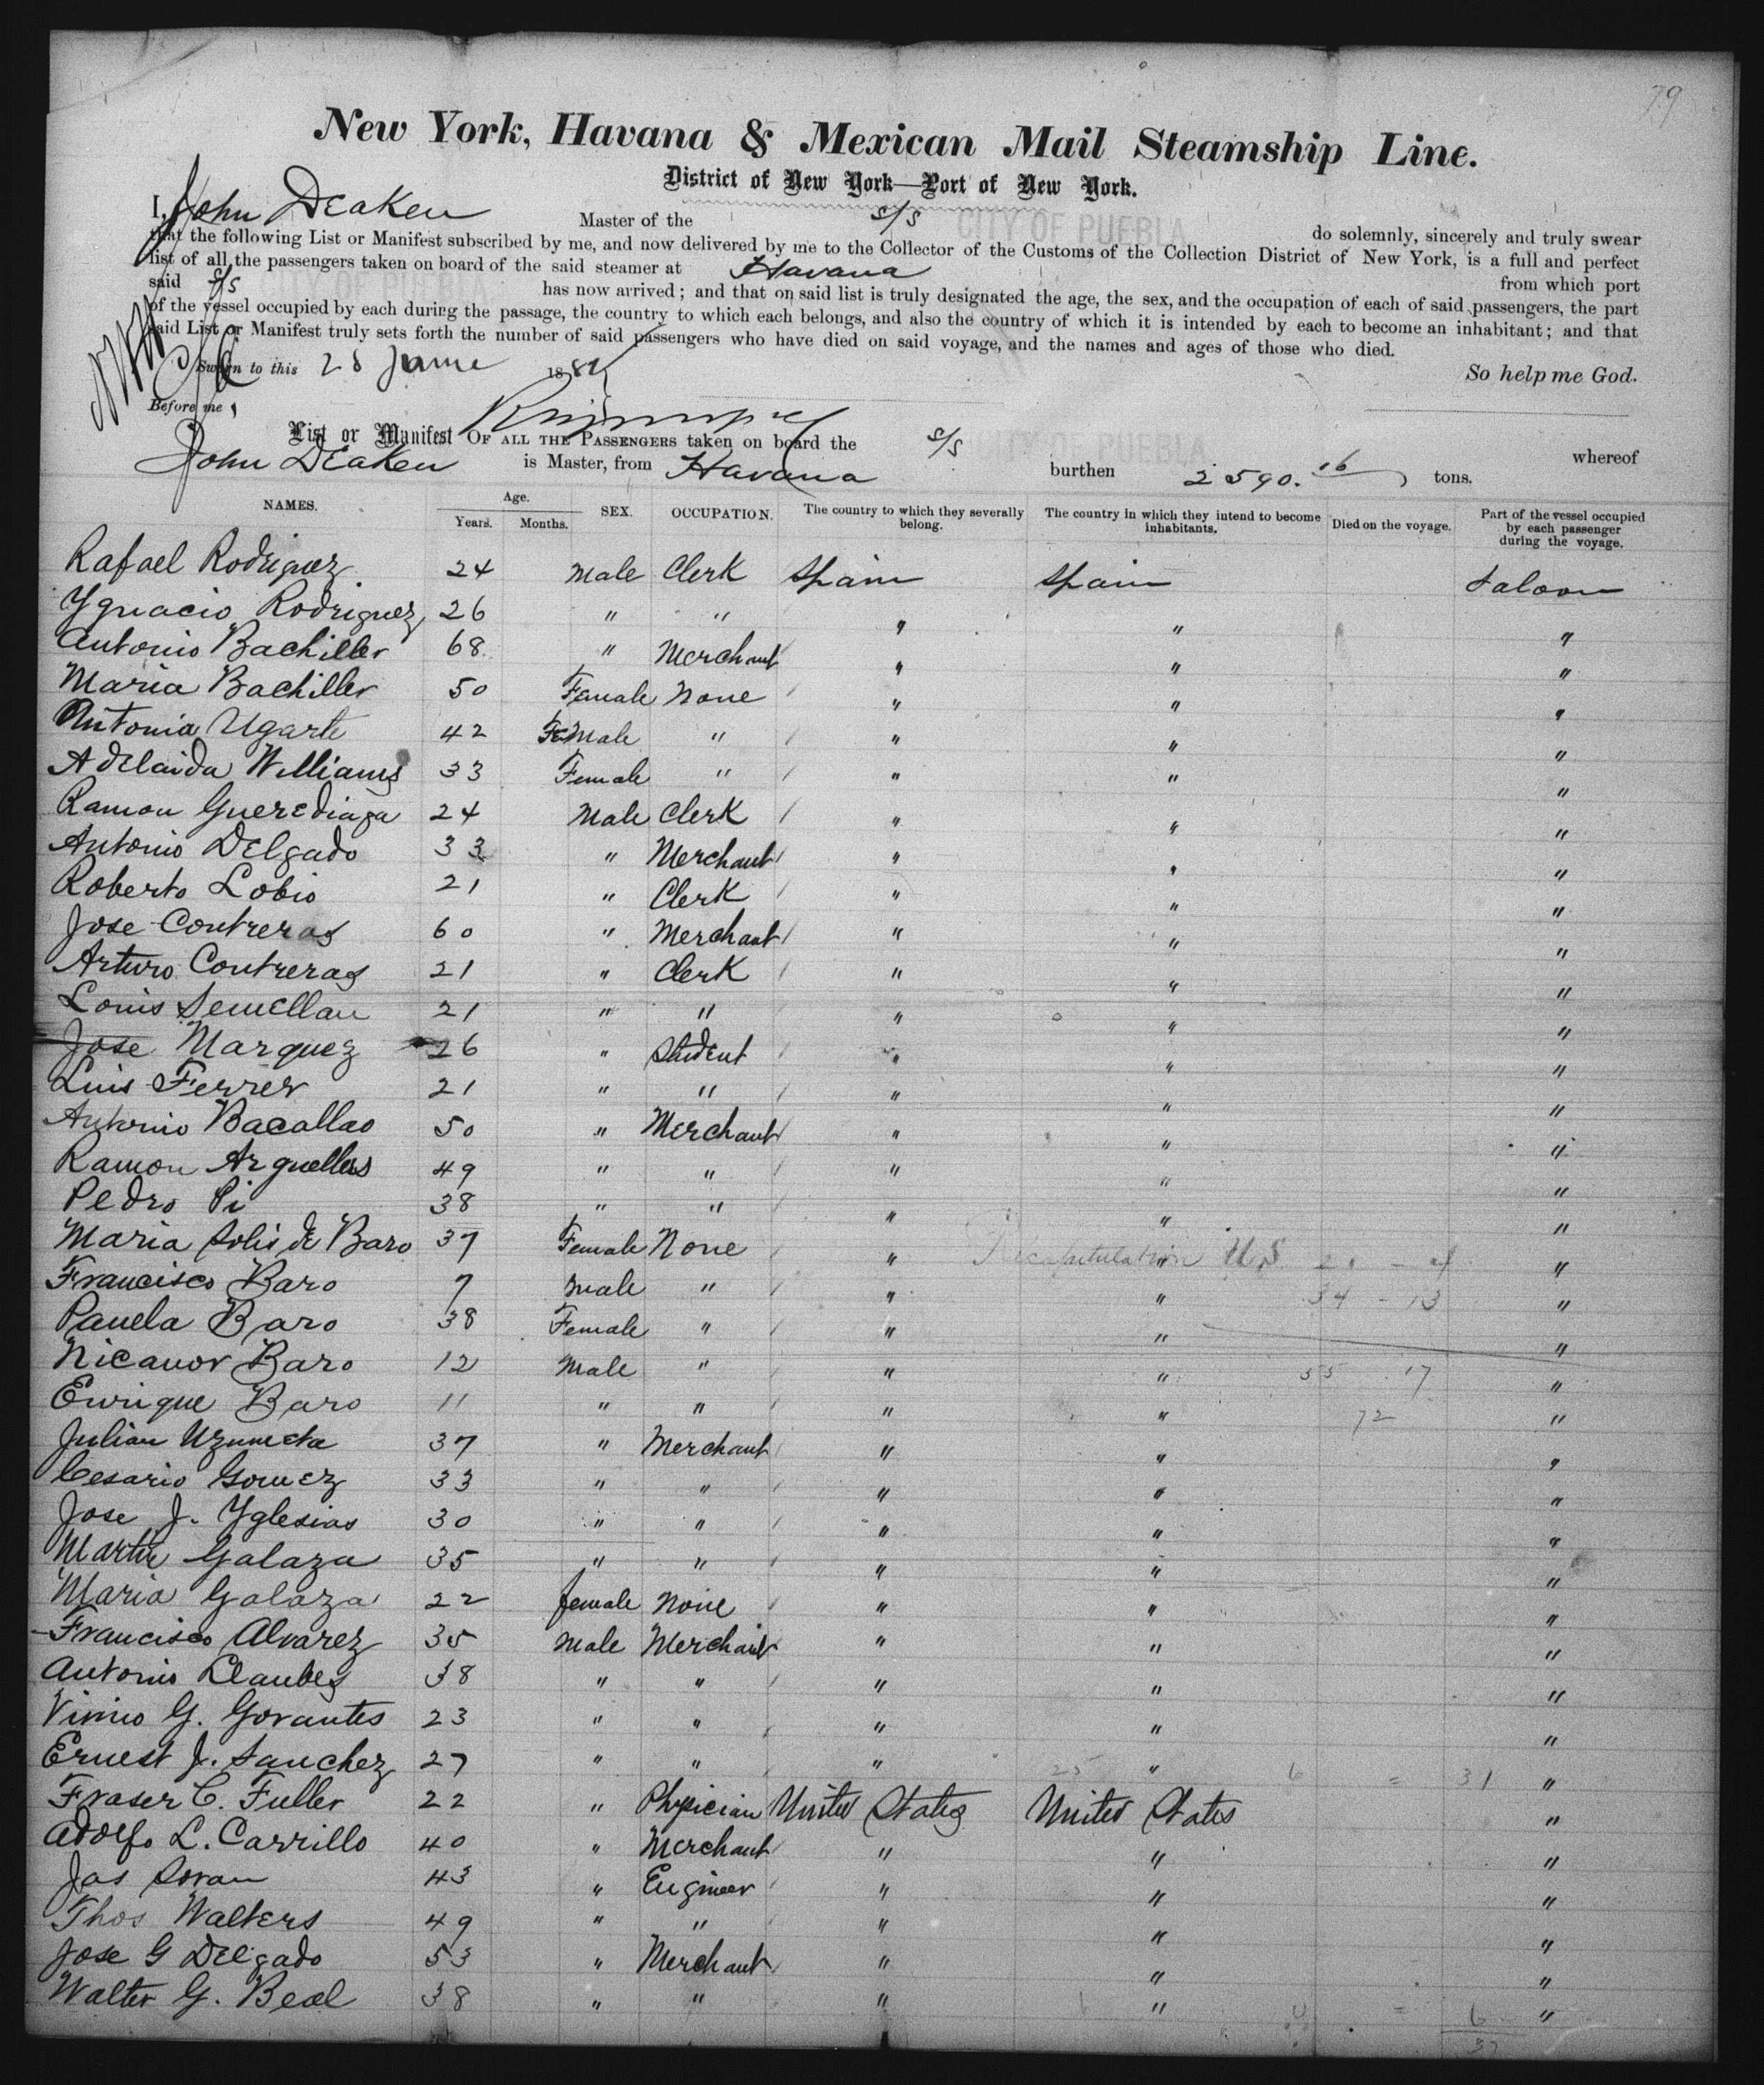 79
New York, Havana & Mexican Mail Steamship Line.
District of New York—Port of New York.
I, John Deaken Master of the s/s CITY OF PUEBLA do solemnly, sincerely and truly swear
that the following List or Manifest subscribed by me, and now delivered by me to the Collector of the Customs of the Collection District of New York, is a full and perfect
list of all the passengers taken on board of the said steamer at Havana from which port
said s/s CITY OF PUEBLA has now arrived; and that on said list is truly designated the age, the sex, and the occupation of each of said passengers, the part
of the vessel occupied by each during the passage, the country to which each belongs, and also the country of which it is intended by each to become an inhabitant; and that
said List or Manifest truly sets forth the number of said passengers who have died on said voyage, and the names and ages of those who died.
Sworn to this 28 June 188 So help me God.
Before me,
List or Manifest OF ALL THE PASSENGERS taken on board the s/s CITY OF PUEBLA whereof
John Deaken is Master, from Havana burthen 2590.16 tons.
NAMES. Age. Years. Months. SEX. OCCUPATION. The country to which they severally belong. The country in which they intend to become inhabitants. Died on the voyage. Part of the vessel occupied by each passenger during the voyage.
Rafael Rodriguez 24 Male Clerk Spain Spain Saloon
Ygnacio Rodriguez 26 " " " " "
Antonio Bachiller 68 " Merchant " " "
Maria Bachiller 50 Female None " " "
Antonia Ugarte 42 Female " " " "
Adelaida Williams 33 Female " " " "
Ramon Guerediaga 24 Male Clerk " " "
Antonio Delgado 33 " Merchant " " "
Roberto Lobio 21 " Clerk " " "
Jose Contreras 60 " Merchant " " "
Arturo Contreras 21 " Clerk " " "
Louis Semellan 21 " " " " "
Jose Marquez 26 " Student " " "
Luis Ferrer 21 " " " " "
Antonio Bacallao 50 " Merchant " " "
Ramon Arguelles 49 " " " " "
Pedro Pi 38 " " " " "
Maria Solis de Baro 37 Female None " " " Recapitulation U.S 21 - 4
Francisco Baro 7 Male " " " " 34 - 13
Panela Baro 38 Female " " " "
Nicanor Baro 12 Male " " " " 55 17
Enrique Baro 11 " " " " " 72
Julian Uzumeta 37 " Merchant " " "
Cesario Gomez 33 " " " " "
Jose J. Yglesias 30 " " " " "
Martin Galaza 35 " " " " "
Maria Galaza 22 female None " " "
Francisco Alvarez 35 Male Merchant " " "
Antonio Llaubes 38 " " " " "
Vinio G. Govantes 23 " " " " "
Ernest J. Sanchez 27 " " " 25 " 6 = 31 "
Fraser C. Fuller 22 " Physician United States United States "
Adolfo L. Carrillo 40 " Merchant " " "
Jas Soran 43 " Engineer " " "
Thos Walters 49 " " " " "
Jose G Delgado 53 " Merchant " " "
Walter G. Beal 38 " " " 6 " 0 = 6 "
37